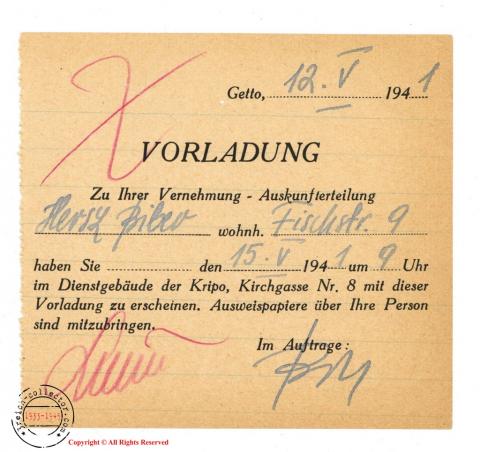 Getto, 12. V 1941
VORLADUNG
Zu Ihrer Vernehmung - Auskunfterteilung
Hersz wohnh. Fischstr. 9
haben Sie den 15. V 1941 um 9 Uhr
im Dienstgebäude der Kripo, Kirchgasse Nr. 8 mit dieser
Vorladung zu erscheinen. Ausweispapiere über Ihre Person
sind mitzubringen.
Im Auftrage:
1933-1945
Copyright © All Rights Reserved